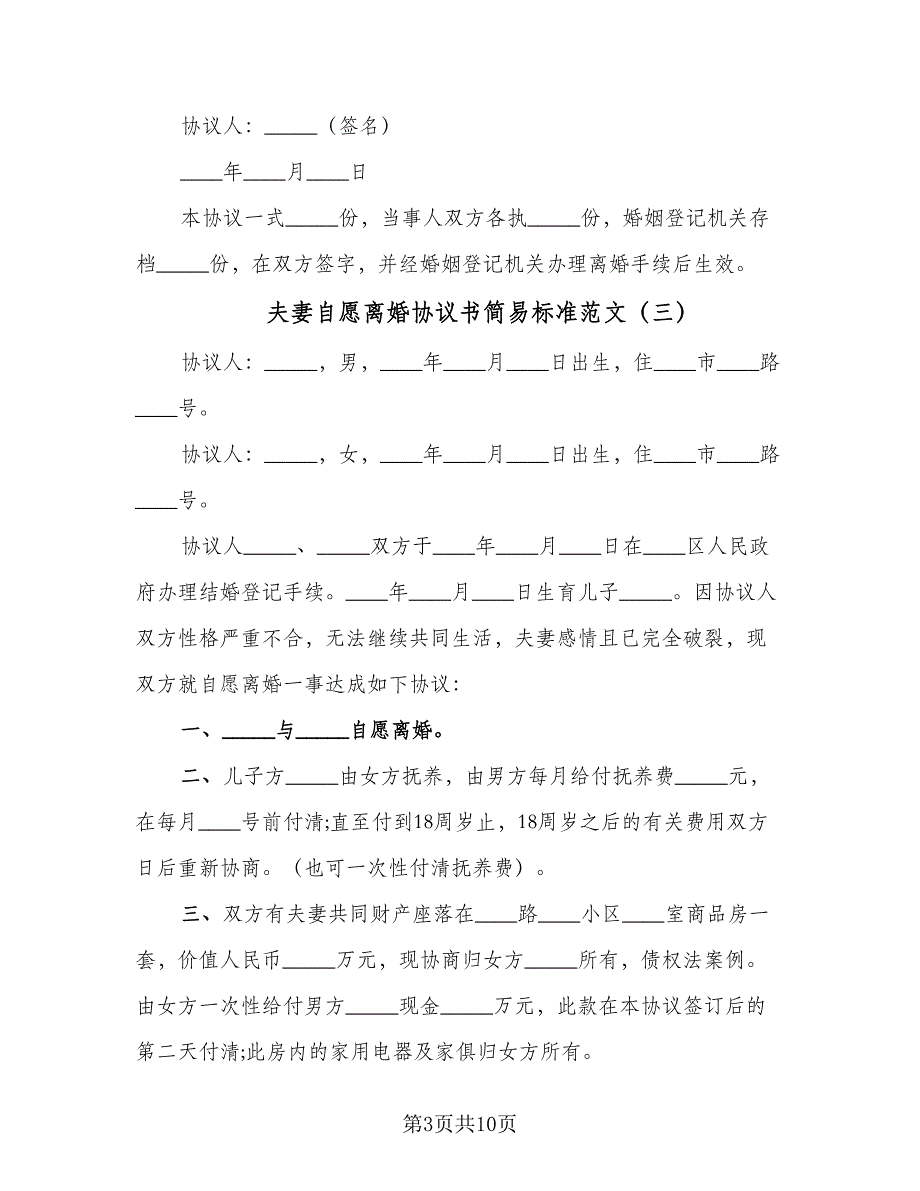 协议人：_____（签名）
____年____月____日
本协议一式_____份，当事人双方各执_____份，婚姻登记机关存
档_____份，在双方签字，并经婚姻登记机关办理离婚手续后生效。
夫妻自愿离婚协议书简易标准范文（三）
协议人：_____，男，____年____月____日出生，住____市____路
____号。
协议人：_____，女，____年____月____日出生，住____市____路
____号。
协议人_____、_____双方于____年____月____日在____区人民政
府办理结婚登记手续。____年____月____日生育儿子_____。因协议人
双方性格严重不合，无法继续共同生活，夫妻感情且已完全破裂，现
双方就自愿离婚一事达成如下协议：
一、_____与_____自愿离婚。
二、儿子方_____由女方抚养，由男方每月给付抚养费_____元，
在每月____号前付清;直至付到18周岁止，18周岁之后的有关费用双方
日后重新协商。（也可一次性付清抚养费）。
三、双方有夫妻共同财产座落在____路____小区____室商品房一
套，价值人民币_____万元，现协商归女方_____所有，债权法案例。
由女方一次性给付男方_____现金_____万元，此款在本协议签订后的
第二天付清;此房内的家用电器及家俱归女方所有。
第3页共10页